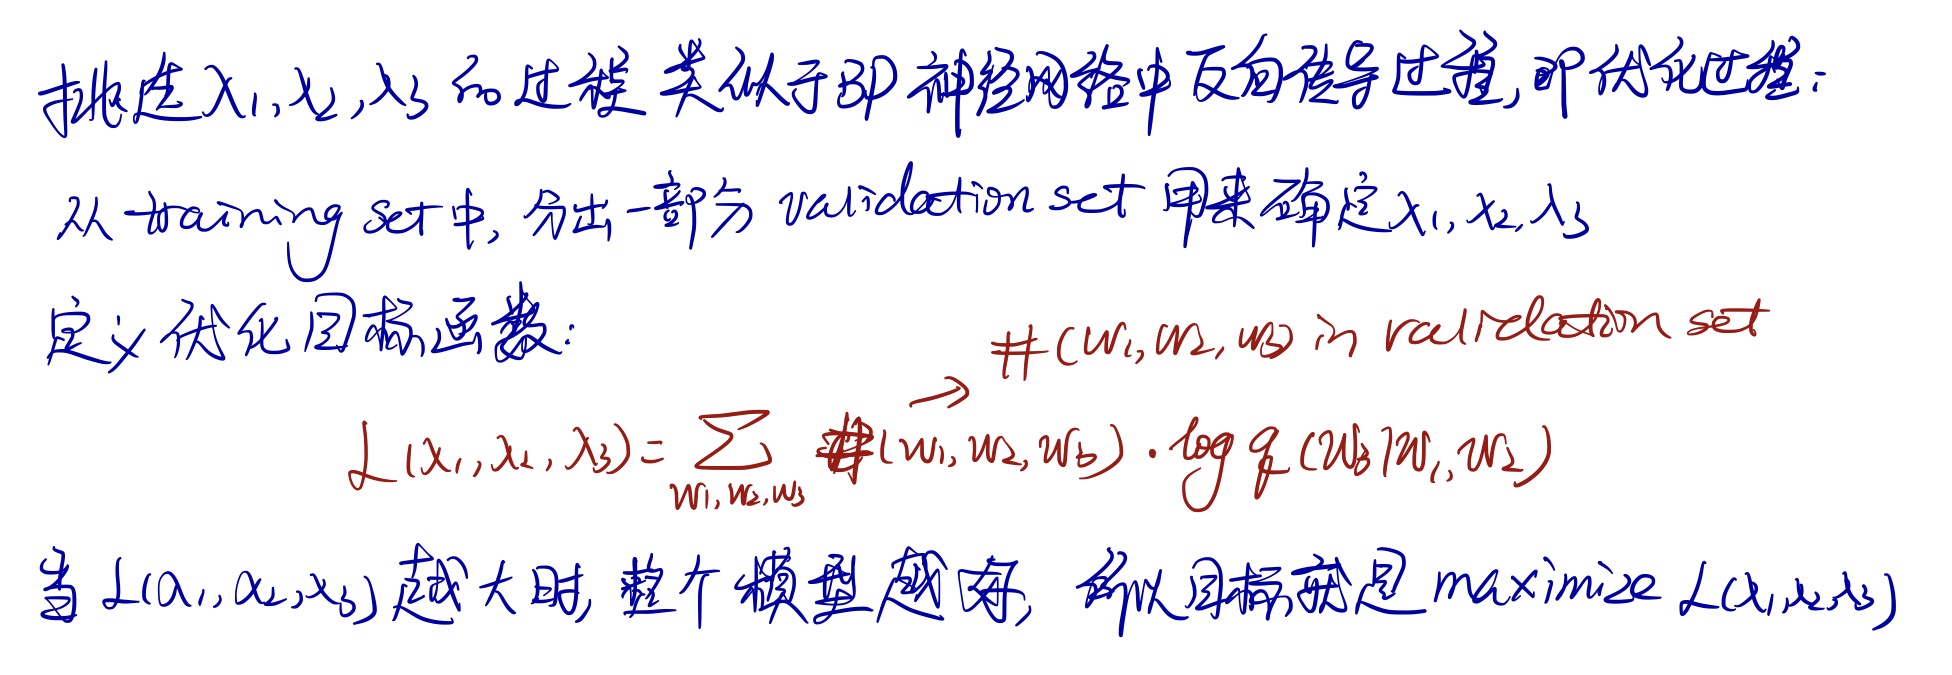 挑选λ1,λ2,λ3的过程类似于BP神经网络中反向传导过程,即优化过程:
从training set中,分出一部分validation set用来确定λ1,λ2,λ3
定义优化目标函数:
#(w1,w2,w3) in validation set
L(λ1,λ2,λ3)=∑ #(w1,w2,w3)·log q(w3|w1,w2)
w1,w2,w3
当L(λ1,λ2,λ3)越大时,整个模型越好,所以目标就是maximize L(λ1,λ2,λ3)